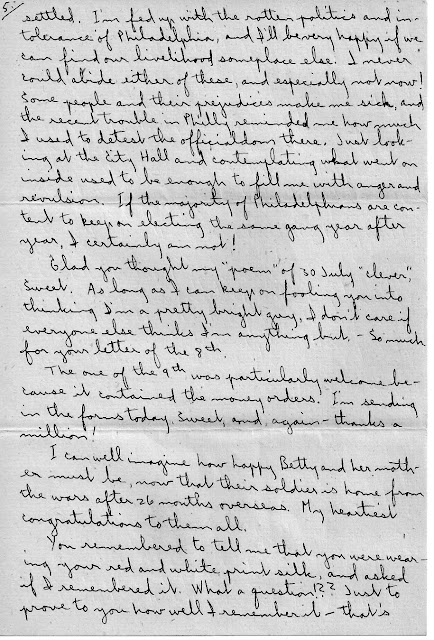 5.
settled. I'm fed up with the rotten politics and in-
tolerance of Philadelphia, and I'll be very happy if we
can find our livelihood someplace else. I never
could abide either of these, and especially not now!
Some people and their prejudices make me sick, and
the recent trouble in Phill. reminded me how much
I used to detest the officialdom there. Just look-
ing at the City Hall and contemplating what went on
inside used to be enough to fill me with anger and
revulsion. If the majority of Philadelphians are con-
tent to keep on electing the same gang year after
year, I certainly am not!
Glad you thought my "poem" of 30 July "clever",
Sweet. As long as I can keep on fooling you into
thinking I'm a pretty bright guy, I don't care if
everyone else thinks I'm anything but. - So much
for your letter of the 8th.
The one of the 9th was particularly welcome be-
cause it contained the money orders. I'm sending
in the forms today, Sweet, and, again - thanks a
million!
I can well imagine how happy Betty and her moth-
er must be, now that their soldier is home from
the wars after 26 months overseas. My heartiest
congratulations to them all.
You remembered to tell me that you were wear-
ing your red and white print silk, and asked
if I remembered it. What a question!?? Just to
prove to you how well I remember it - that's